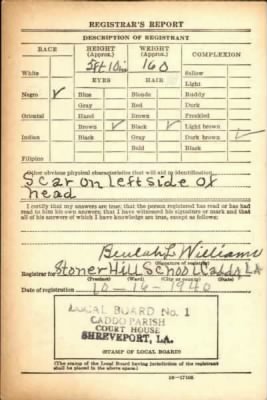 REGISTRAR'S REPORT
DESCRIPTION OF REGISTRANT
RACE
HEIGHT (Approx.)
WEIGHT (Approx.)
COMPLEXION
5ft 10in
160
White
Sallow
EYES
HAIR
Light
Negro ✓
Blue
Blonde
Ruddy
Gray
Red
Dark
Oriental
Hazel
Brown
Freckled
Brown ✓
Black ✓
Light brown
Indian
Black
Gray
Dark brown ✓
Bald
Black
Filipino
Other obvious physical characteristics that will aid in identification
Scar on left side of
head
I certify that my answers are true; that the person registered has read or has had
read to him his own answers; that I have witnessed his signature or mark and that
all of his answers of which I have knowledge are true, except as follows:
Beulah L Williams
(Signature of registrar)
Registrar for Stoner Hill School Caddo LA
(Precinct) (Ward) (City or county) (State)
Date of registration 10-16-1940
LOCAL BOARD No. 1
CADDO PARISH
COURT HOUSE
SHREVEPORT, LA.
(STAMP OF LOCAL BOARD)
(The stamp of the Local Board having jurisdiction of the registrant
shall be placed in the above space.)